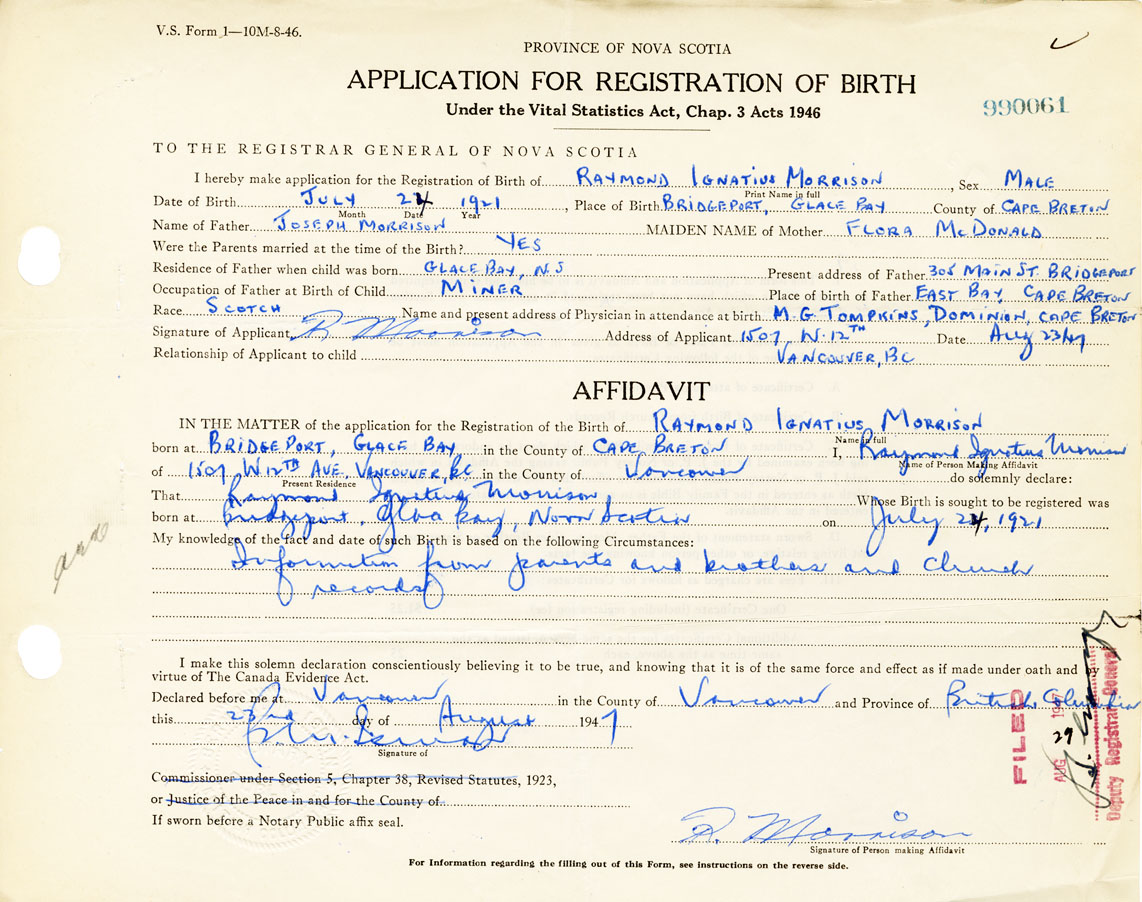 V.S. Form 1—10M-8-46.
PROVINCE OF NOVA SCOTIA
APPLICATION FOR REGISTRATION OF BIRTH
Under the Vital Statistics Act, Chap. 3 Acts 1946
990061
TO THE REGISTRAR GENERAL OF NOVA SCOTIA
I hereby make application for the Registration of Birth of RAYMOND IGNATIUS MORRISON, Sex MALE
Print Name in full
Date of Birth JULY 24 1921, Place of Birth BRIDGEPORT, GLACE BAY County of CAPE BRETON
Month Date Year
Name of Father JOSEPH MORRISON MAIDEN NAME of Mother FLORA McDONALD
Were the Parents married at the time of the Birth? YES
Residence of Father when child was born GLACE BAY, N.S Present address of Father 305 MAIN ST. BRIDGEPORT
Occupation of Father at Birth of Child MINER Place of birth of Father EAST BAY, CAPE BRETON
Race SCOTCH Name and present address of Physician in attendance at birth M.G TOMPKINS, DOMINION, CAPE BRETON
Signature of Applicant R. Morrison Address of Applicant 1507 W. 12TH Date Aug 23/47
Relationship of Applicant to child VANCOUVER, BC
AFFIDAVIT
IN THE MATTER of the application for the Registration of the Birth of RAYMOND IGNATIUS MORRISON
Name in full
born at BRIDGEPORT, GLACE BAY, in the County of CAPE BRETON I, Raymond Ignatius Morrison
Name of Person Making Affidavit
of 1507 W 12TH AVE. VANCOUVER, B.C. in the County of Vancouver do solemnly declare:
Present Residence
That Raymond Ignatius Morrison, Whose Birth is sought to be registered was
born at Bridgeport, Glace Bay, Nova Scotia on July 24, 1921
My knowledge of the fact and date of such Birth is based on the following Circumstances:
Information from parents and brothers and Church
records
I make this solemn declaration conscientiously believing it to be true, and knowing that it is of the same force and effect as if made under oath and by
virtue of The Canada Evidence Act.
Declared before me at Vancouver in the County of Vancouver and Province of British Columbia
this 23rd day of August 1947
Signature of
Commissioner under Section 5, Chapter 38, Revised Statutes, 1923,
or Justice of the Peace in and for the County of
If sworn before a Notary Public affix seal.
R. Morrison
Signature of Person making Affidavit
For Information regarding the filling out of this Form, see instructions on the reverse side.
FILED
AUG 29 1947
Deputy Registrar General